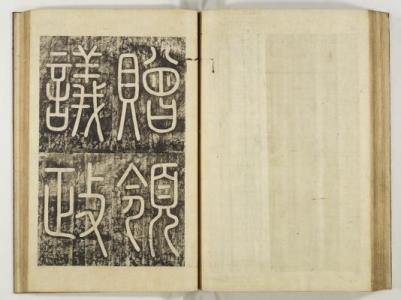 贈領
議政